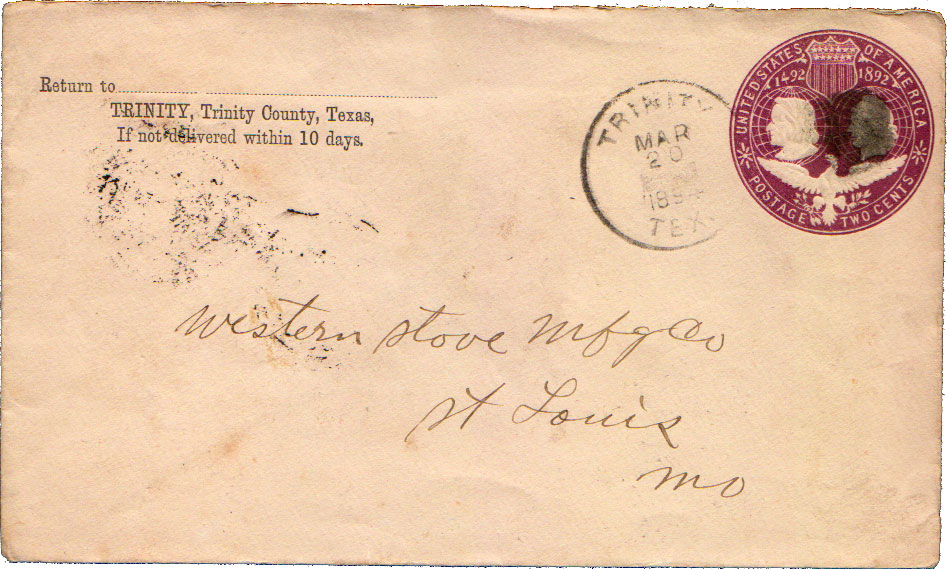 Return to
TRINITY, Trinity County, Texas,
If not delivered within 10 days.
TRINITY
MAR
20
TEX
UNITED STATES OF AMERICA
1492 1892
POSTAGE TWO CENTS
Western Stove Mfg Co
St Louis
Mo